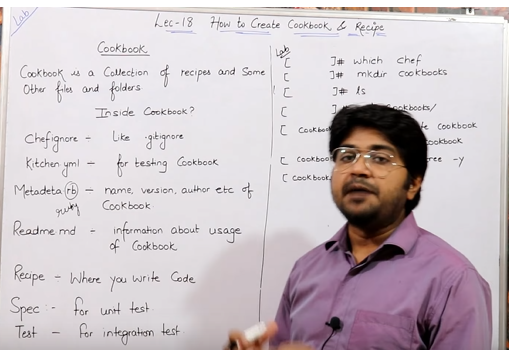 Lab
Lec-18 How to Create Cookbook & Recipe
Cookbook
Cookbook is a Collection of recipes and Some
Other files and folders
Inside Cookbook?
Chefignore - Like .gitignore
Kitchen.yml - for testing Cookbook
Metadeta rb - name, version, author etc of
ruby Cookbook
Readme md - information about usage
of Cookbook
Recipe - Where you Write Code
Spec :- for unit test
Test - for integration test
Lab
[ ]# which chef
[ ]# mkdir cookbooks
[ ]# ls
[ cookbooks/
[ cookbook cookbook
cookbook
[ cookboo -y
[ cookboo